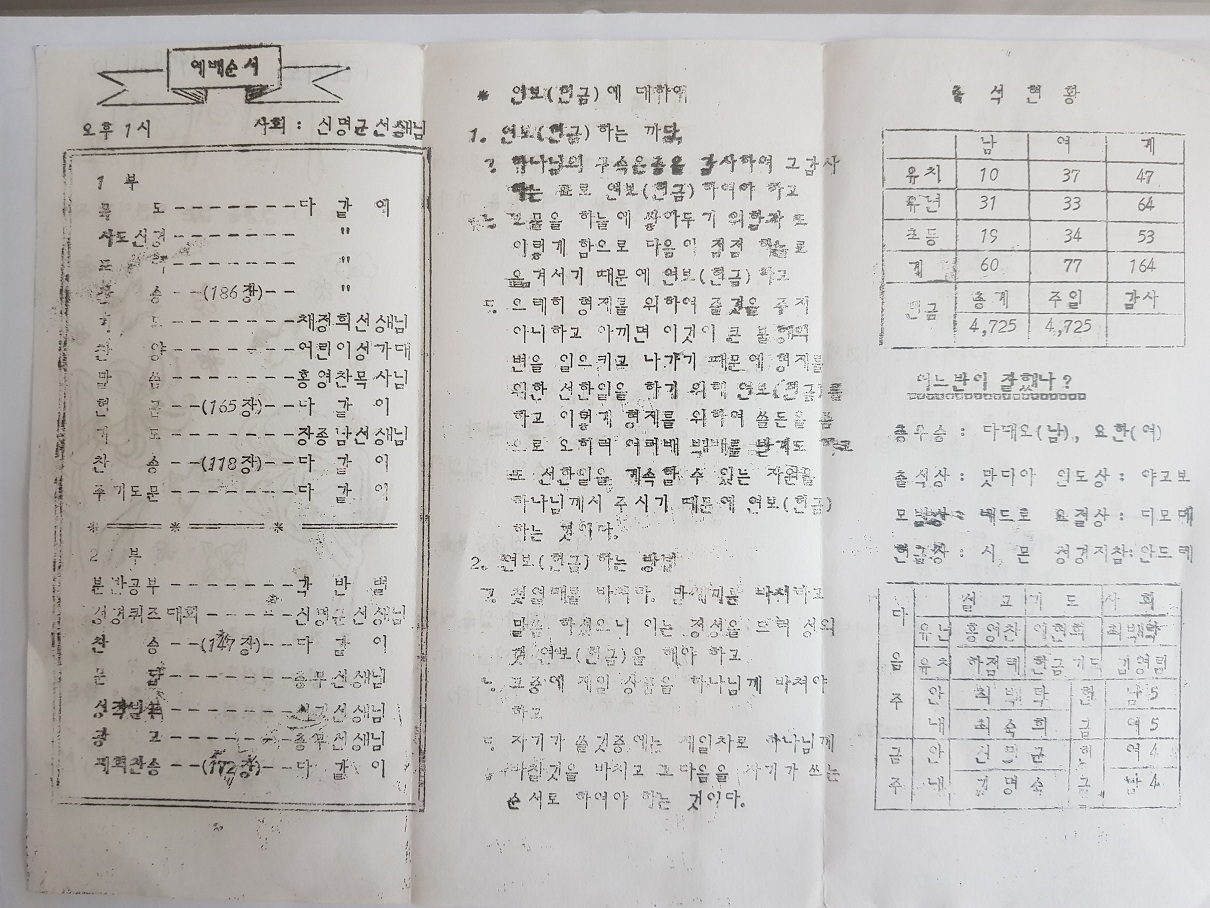 예배순서
오후 1시 사회 : 신명균선생님
1 부
묵 도 ------- 다 같 이
사도신경 ------- "
------- "
찬 송 --(186장)-- "
기 도 ------- 채정희선생님
찬 양 ------- 어린이성가대
말 씀 ------- 홍영찬목사님
헌 금 --(165장)-- 다 같 이
기 도 ------- 장종남선생님
찬 송 --(118장)-- 다 같 이
주기도문 ------- 다 같 이
* ==== * ==== * ====
2 부
분반공부 ------- 각 반 별
성경퀴즈대회 ----- 신명균선생님
찬 송 --(147장)-- 다 같 이
문 답 ------- 총무선생님
------- 서기선생님
광 고 ------- 총무선생님
폐회찬송 --(172장)-- 다 같 이
* 연보(헌금)에 대하여
1. 연보(헌금) 하는 까닭
ㄱ. 하나님의 구속은총을 감사하여 그 감사
하는 표로 연보(헌금) 하여야 하고
ㄴ. 보물을 하늘에 쌓아두기 위함과 또
이렇게 함으로 마음이 점점 하늘로
옮겨지기 때문에 연보(헌금) 하고
ㄷ. 으레히 형제를 위하여 줄것을 주지
아니하고 아끼면 이것이 큰
변을 일으키고 나가기 때문에 형제를
위한 선한일을 하기 위해 연보(헌금)를
하고 이렇게 형제를 위하여 쓸돈을 줌
으로 오히려 여러배 받기도 하고
또 선한일을 계속할 수 있는 자원을
하나님께서 주시기 때문에 연보(헌금)
하는 것이다.
2. 연보(헌금) 하는 방법
ㄱ. 첫열매를 바치라. 바치라고
말씀 하셨으니 이는 정성을 드려 성의
껏 연보(헌금)을 해야 하고
ㄴ. 그중에 제일 상품을 하나님께 바쳐야
하고
ㄷ. 자기가 쓸것중에는 제일차로 하나님께
바칠것을 바치고 그 다음을 자기가 쓰는
순서로 하여야 하는 것이다.
출 석 현 황
남 여 계
유치 10 37 47
유년 31 33 64
초등 19 34 53
계 60 77 164
헌금 총계 주일 감사
4,725 4,725
어느반이 잘했나?
총우승 : 다대오(남), 요한(여)
출석상 : 맛디아 인도상 : 야고보
모범상 : 베드로 요절상 : 디모데
헌금상 : 시 몬 성경지참: 안드레
다 설 교 기 도 사 회
유년 홍영찬 이현희 최백락
음 유치 하점례 헌금기도 김영림
주 안 최 백 락 헌 남 5
내 최 숙 희 금 여 5
금 안 신 명 균 헌 여 4
주 내 김 명 숙 금 남 4